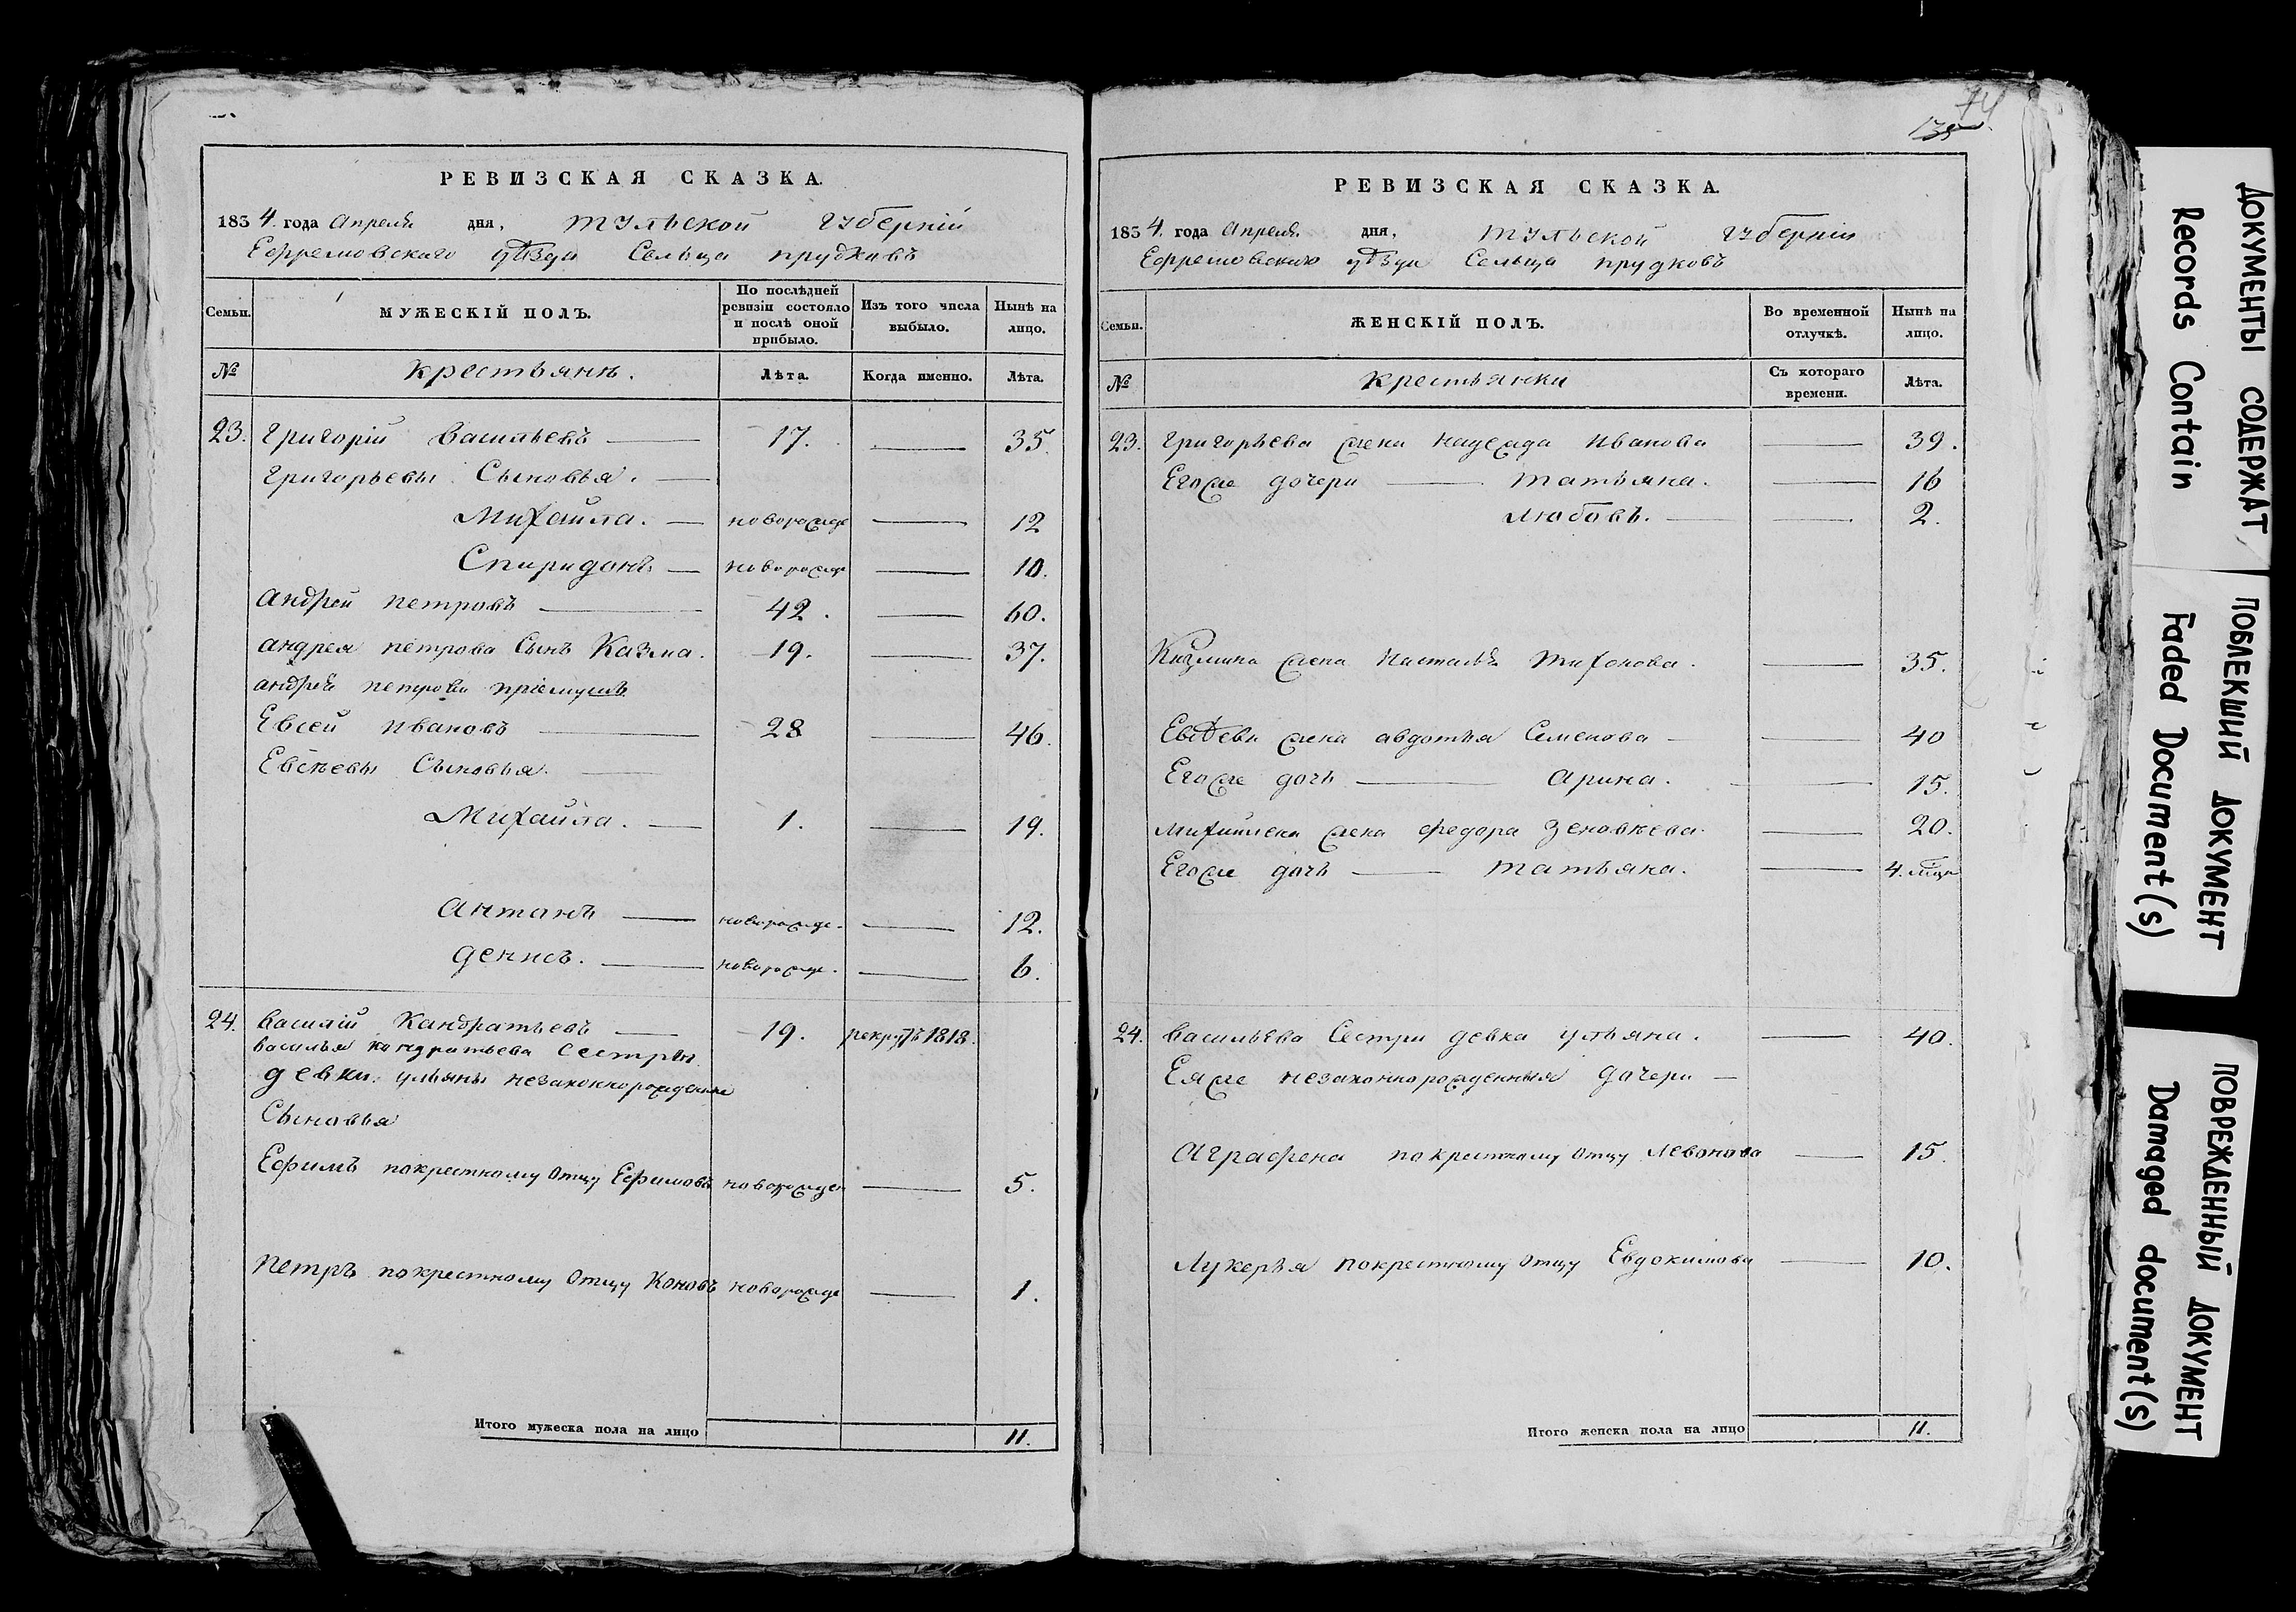 РЕВИЗСКАЯ СКАЗКА.
1834. года Апреля дня, Тульской губернїи
Ефремовского уѣзда Сельца прудковъ
Семьи. МУЖЕСКІЙ ПОЛЪ. По послѣдней ревизіи состояло и послѣ оной прибыло. Изъ того числа выбыло. Нынѣ на лицо.
№ крестьянъ. Лѣта. Когда именно. Лѣта.
23. григорій васильевъ — 17. — 35.
григорьевы Сыновья. —
Михайла. — новорожде — 12
Спиридонъ — новорожде — 10.
андрей петровъ — 42. — 60.
андрея петрова Сынъ Казма. 19. — 37.
андрея петрова пріемушъ
Евсей ивановъ — 28 — 46.
Евсѣевы Сыновья. —
Михайла. — 1. — 19.
антанъ — новорожде. — 12.
денисъ. — новорожде. — 6.
24. василій Кандратьевъ — 19. рекрутъ 1818.
василья кондратьева Сестры
девки ульяны незаконнорожденые
Сыновья
Ефимъ покрестному отцу Ефимовъ новорожден — 5.
петръ покрестному отцу Коновъ новорожде — 1.
Итого мужеска пола на лицо 11.
74
135
РЕВИЗСКАЯ СКАЗКА.
1834. года Апреля дня, Тульской губерніи
Ефремовского уѣзда Сельца прудковъ
Семьи. ЖЕНСКІЙ ПОЛЪ. Во временной отлучкѣ. Нынѣ на лицо.
№ крестьянки Съ котораго времени. Лѣта.
23. григорьева жена надежда иванова — 39.
Егоже дочери — татьяна. — 16
любовь. — — 2.
Кузмина жена настасья тихонова. — 35.
Евсѣева жена авдотья Семенова — — 40
Егоже дочь — арина. — 15.
михайлова жена федора зеновѣева. — 20.
Егоже дочь — татьяна. — 4. мѣця
24. васильева Сестра девка ульяна. — 40.
Еяже незаконнорожденныя дочери —
аграфена покрестному отцу левонова — 15.
лукерья покрестному отцу Евдокимова — 10.
Итого женска пола на лицо 11.
ДОКУМЕНТЫ СОДЕРЖАТ
Records Contain
ПОБЛЕКШИЙ ДОКУМЕНТ
Faded Document(s)
ПОВРЕЖДЕННЫЙ ДОКУМЕНТ
Damaged document(s)